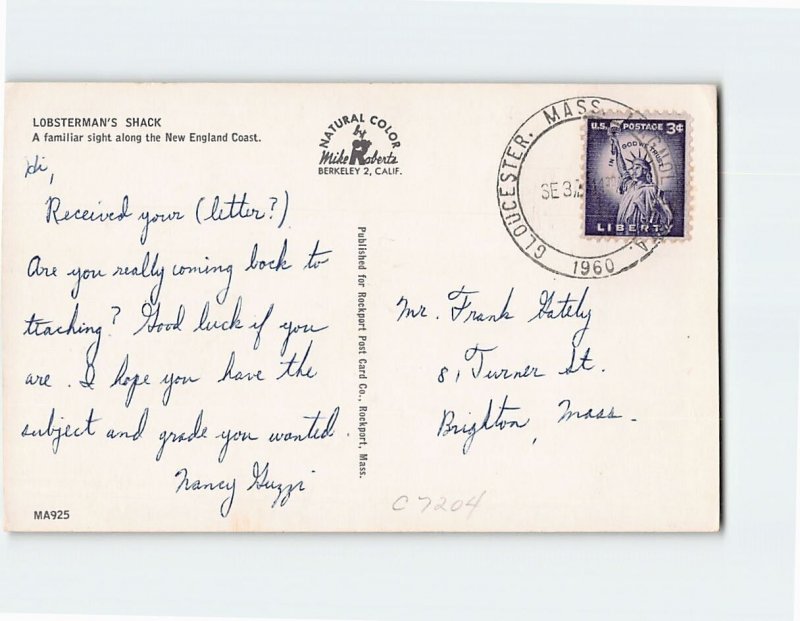 LOBSTERMAN'S SHACK
A familiar sight along the New England Coast.
NATURAL COLOR
by
Mike Roberts
BERKELEY 2, CALIF.
Hi,
Received your (letter?)
Are you really coming back to
teaching? Good luck if you
are. I hope you have the
subject and grade you wanted.
Nancy Guzzi
MA925
Published for Rockport Post Card Co., Rockport, Mass.
GLOUCESTER, MASS.
SE 3
1960
U.S. POSTAGE 3¢
IN GOD WE TRUST
LIBERTY
Mr. Frank Gately
8, Turner St.
Brighton, Mass.
C7204